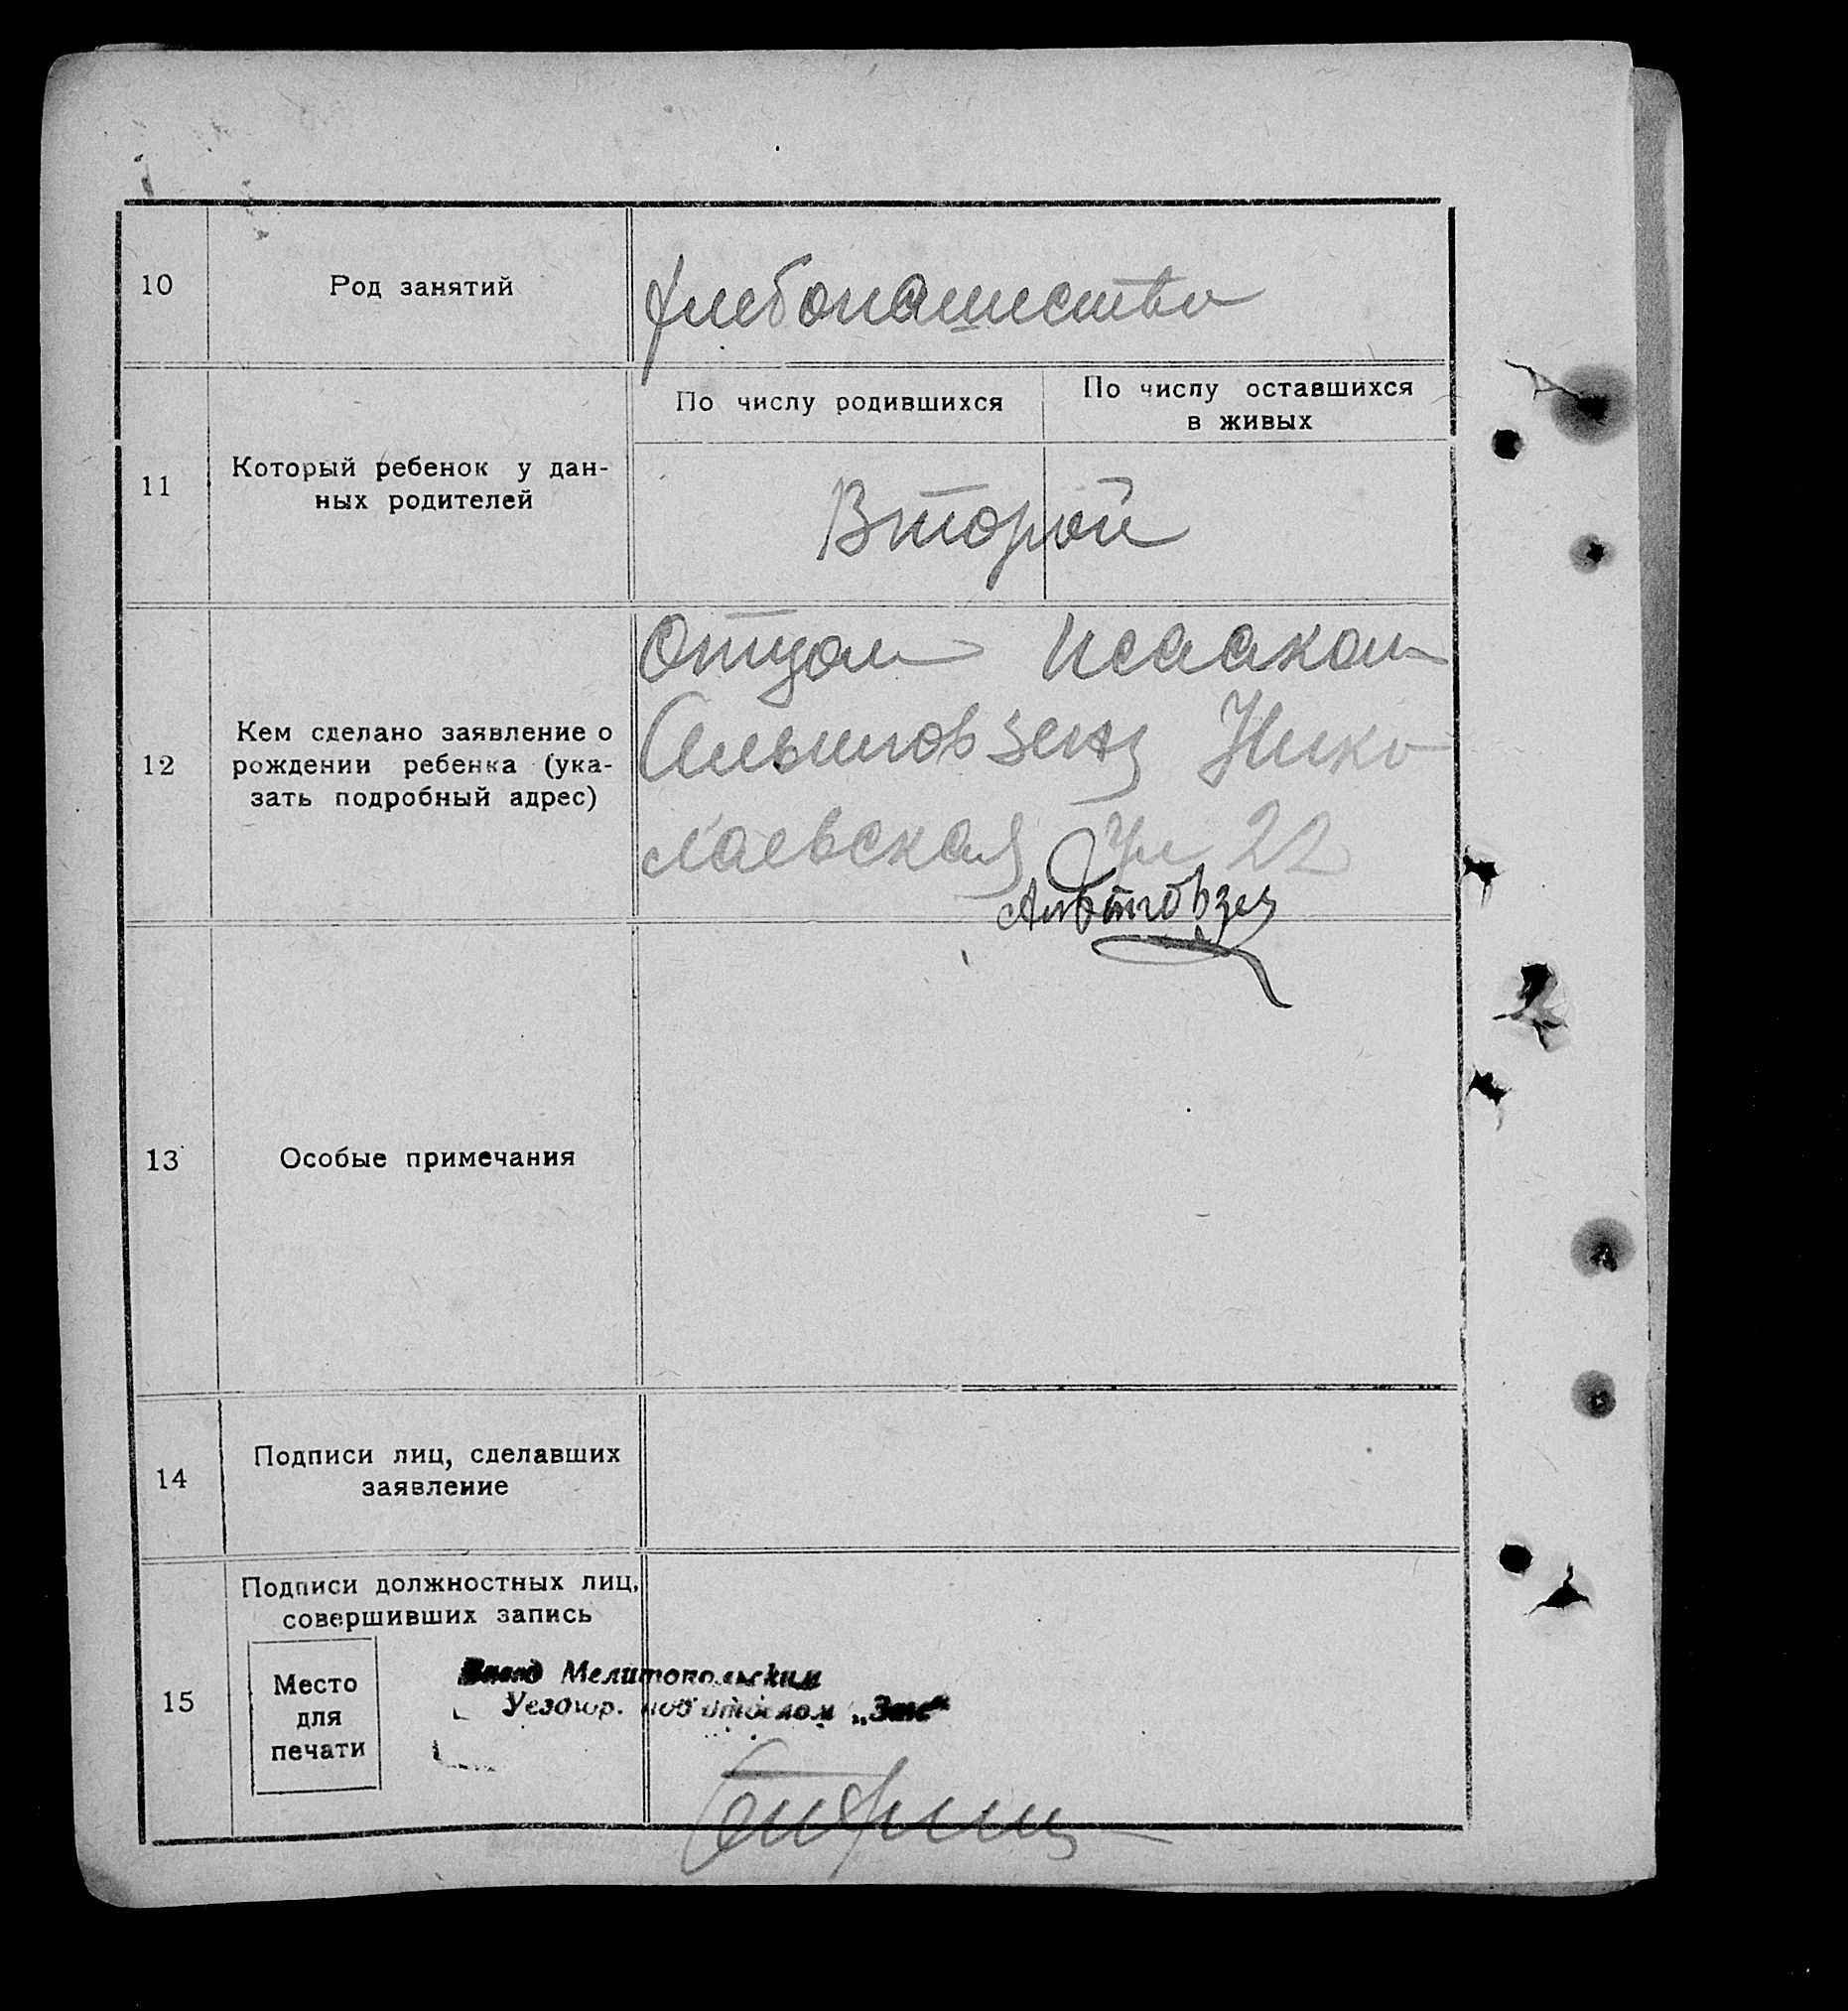 10 Род занятий хлебопашество
По числу родившихся По числу оставшихся
в живых
11 Который ребенок у дан-
ных родителей
Второй
12 Кем сделано заявление о
рождении ребенка (ука-
зать подробный адрес)
Отцом Исааком
Нико
лаевская ул 22
13 Особые примечания
14 Подписи лиц, сделавших
заявление
15 Подписи должностных лиц,
совершивших запись
Место
для
печати
Мелитопольским
Уездгор. подотделом „Загс“